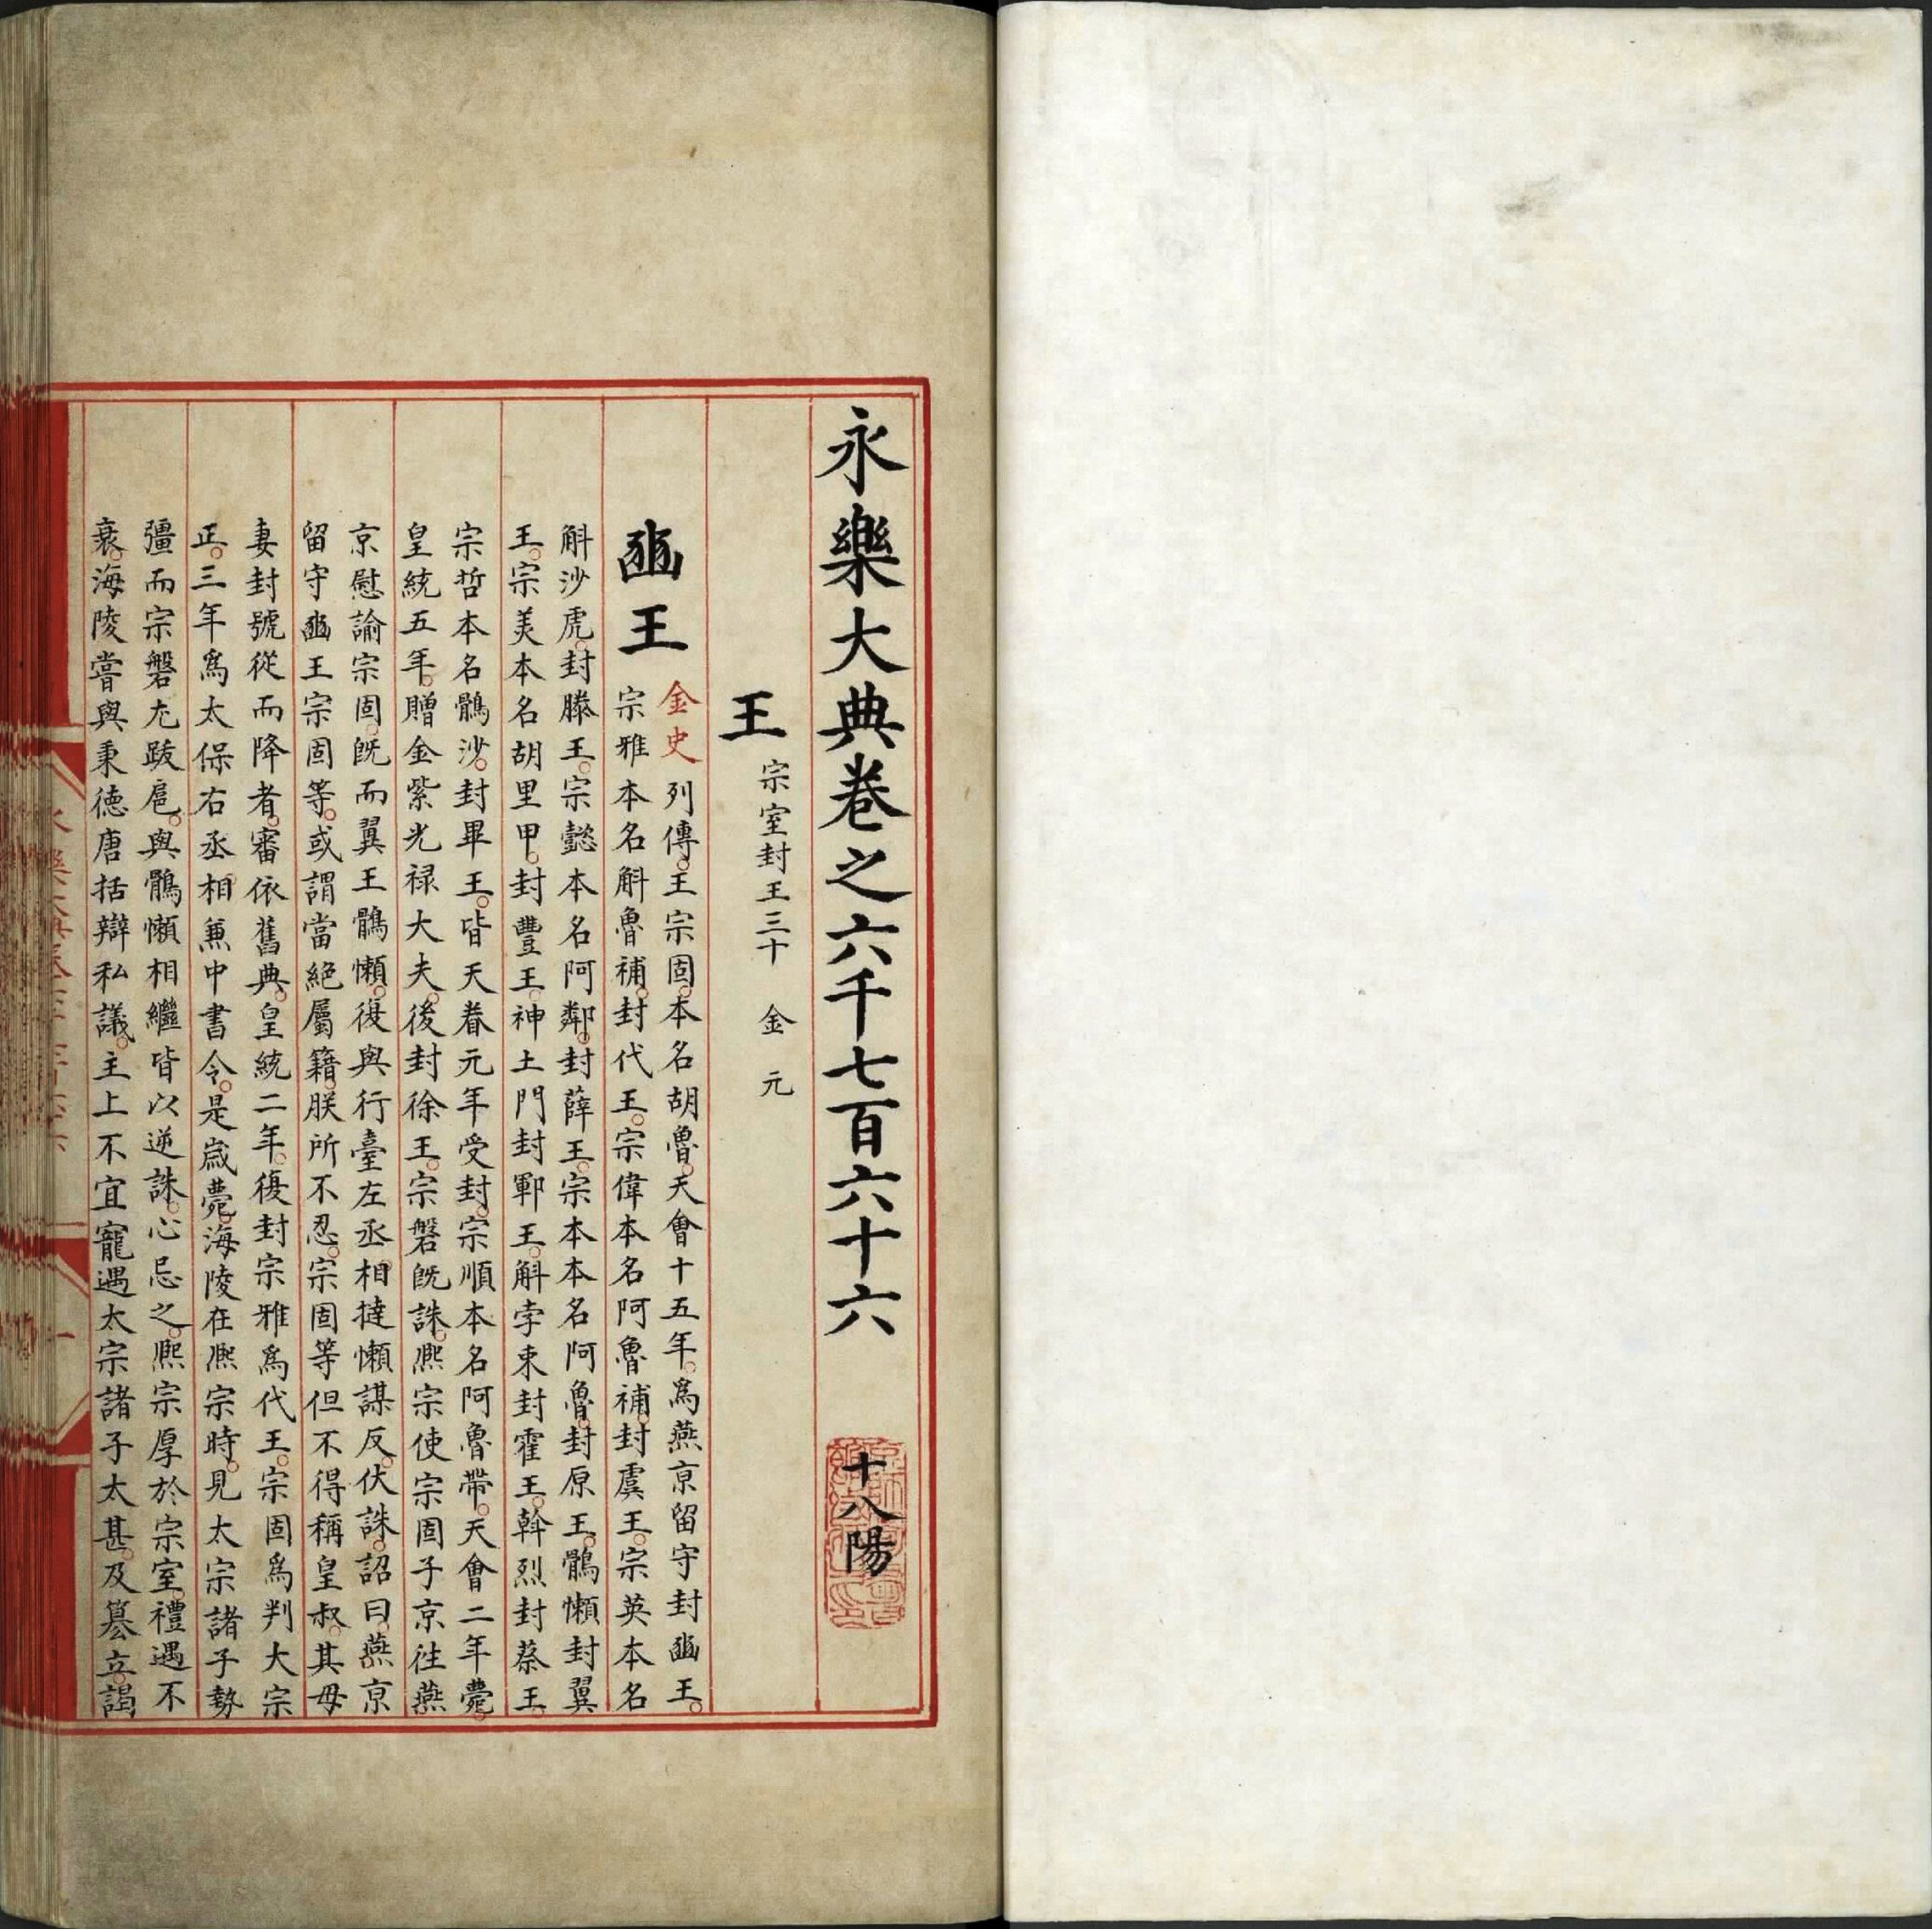 永樂大典卷之六千七百六十六　十八陽
王　宗室封王三十　金　元
豳王　金史列傳王宗固本名胡魯天會十五年爲燕京留守封豳王
宗雅本名斛魯補封代王宗偉本名阿魯補封虞王宗英本名
斛沙虎封滕王宗懿本名阿鄰封薛王宗本本名阿魯封原王鶻懶封翼
王宗美本名胡里甲封豐王神土門封鄆王斛孛束封霍王斡烈封蔡王
宗哲本名鶻沙封畢王皆天眷元年受封宗順本名阿魯帶天會二年薨
皇統五年贈金紫光禄大夫後封徐王宗磐旣誅熙宗使宗固子京徃燕
京慰諭宗固旣而翼王鶻懶復與行臺左丞相撻懶謀反伏誅詔曰燕京
留守豳王宗固等或謂當絕屬籍朕所不忍宗固等但不得稱皇叔其母
妻封號從而降者審依舊典皇統二年復封宗雅爲代王宗固爲判大宗
正三年爲太保右丞相兼中書令是歲薨海陵在熙宗時見太宗諸子勢
彊而宗磐尤跋扈與鶻懶相繼皆以逆誅心忌之熙宗厚於宗室禮遇不
衰海陵嘗與秉德唐括辯私議主上不宜寵遇太宗諸子太甚及簒立謁